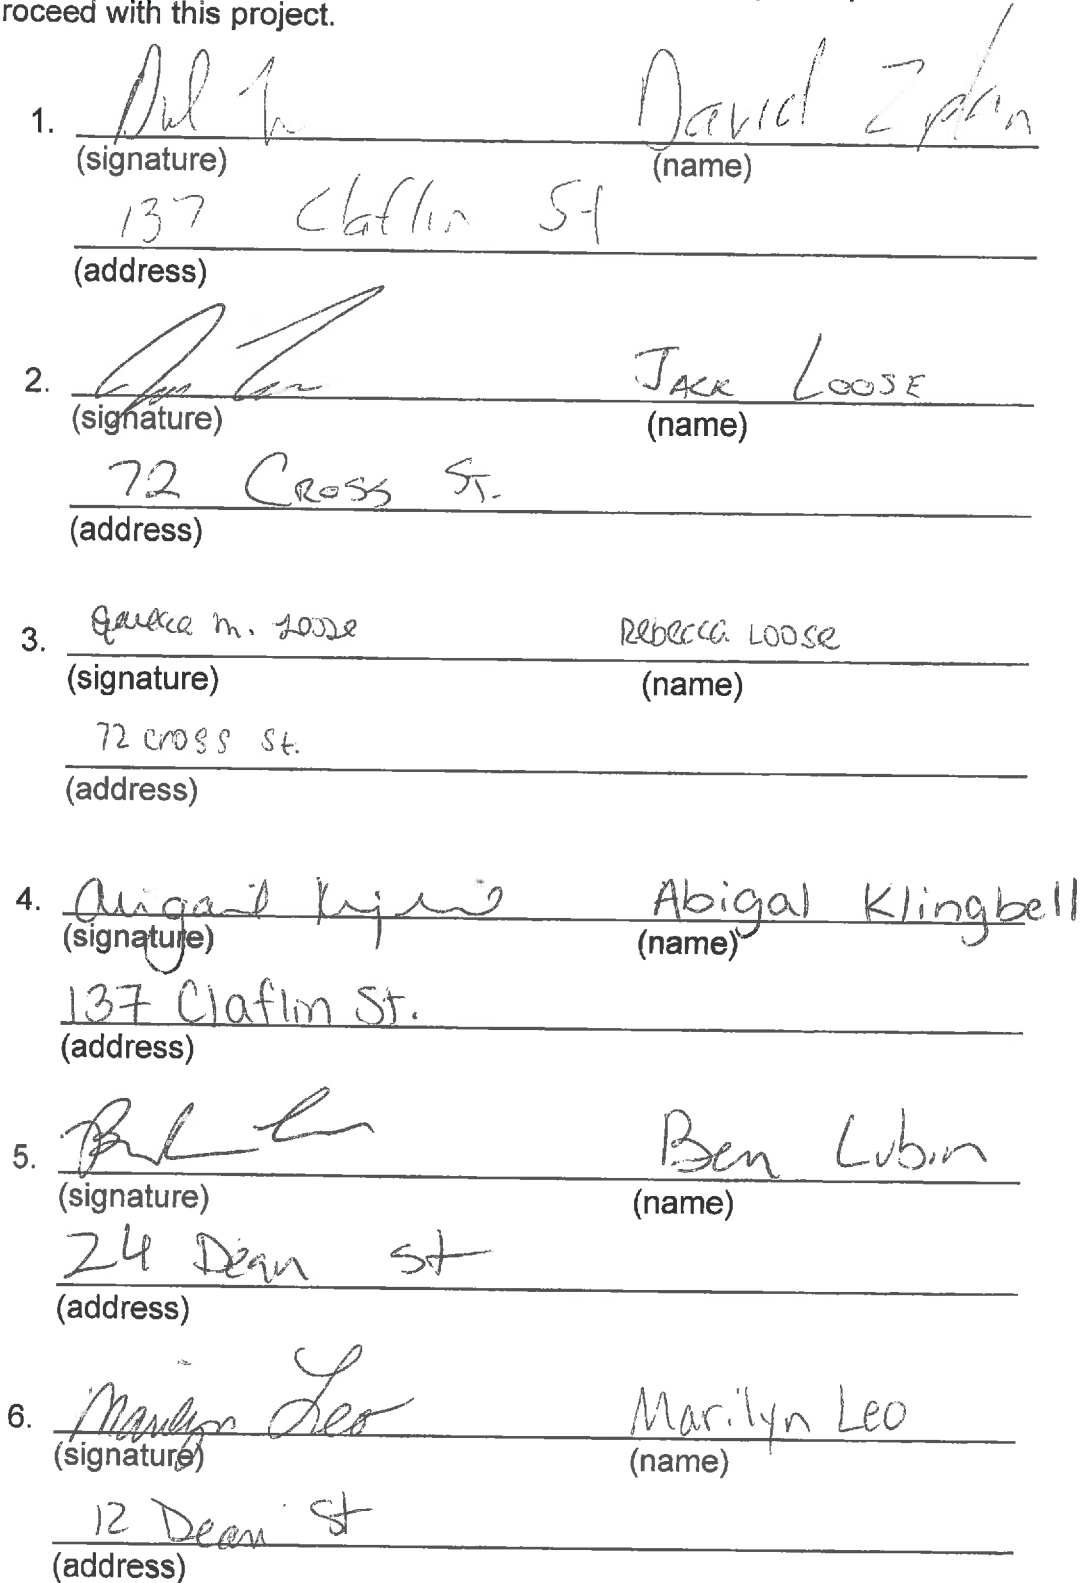 roceed with this project.
1.
David
(signature) (name)
137 Claflin St
(address)
2. JACK LOOSE
(signature) (name)
72 CROSS ST.
(address)
3. Rebecca M. Loose Rebecca Loose
(signature) (name)
72 Cross St.
(address)
4. Abigail Abigal Klingbell
(signature) (name)
137 Claflin St.
(address)
5. Ben Lubin
(signature) (name)
24 Dean St
(address)
6. Marilyn Leo Marilyn Leo
(signature) (name)
12 Dean St
(address)